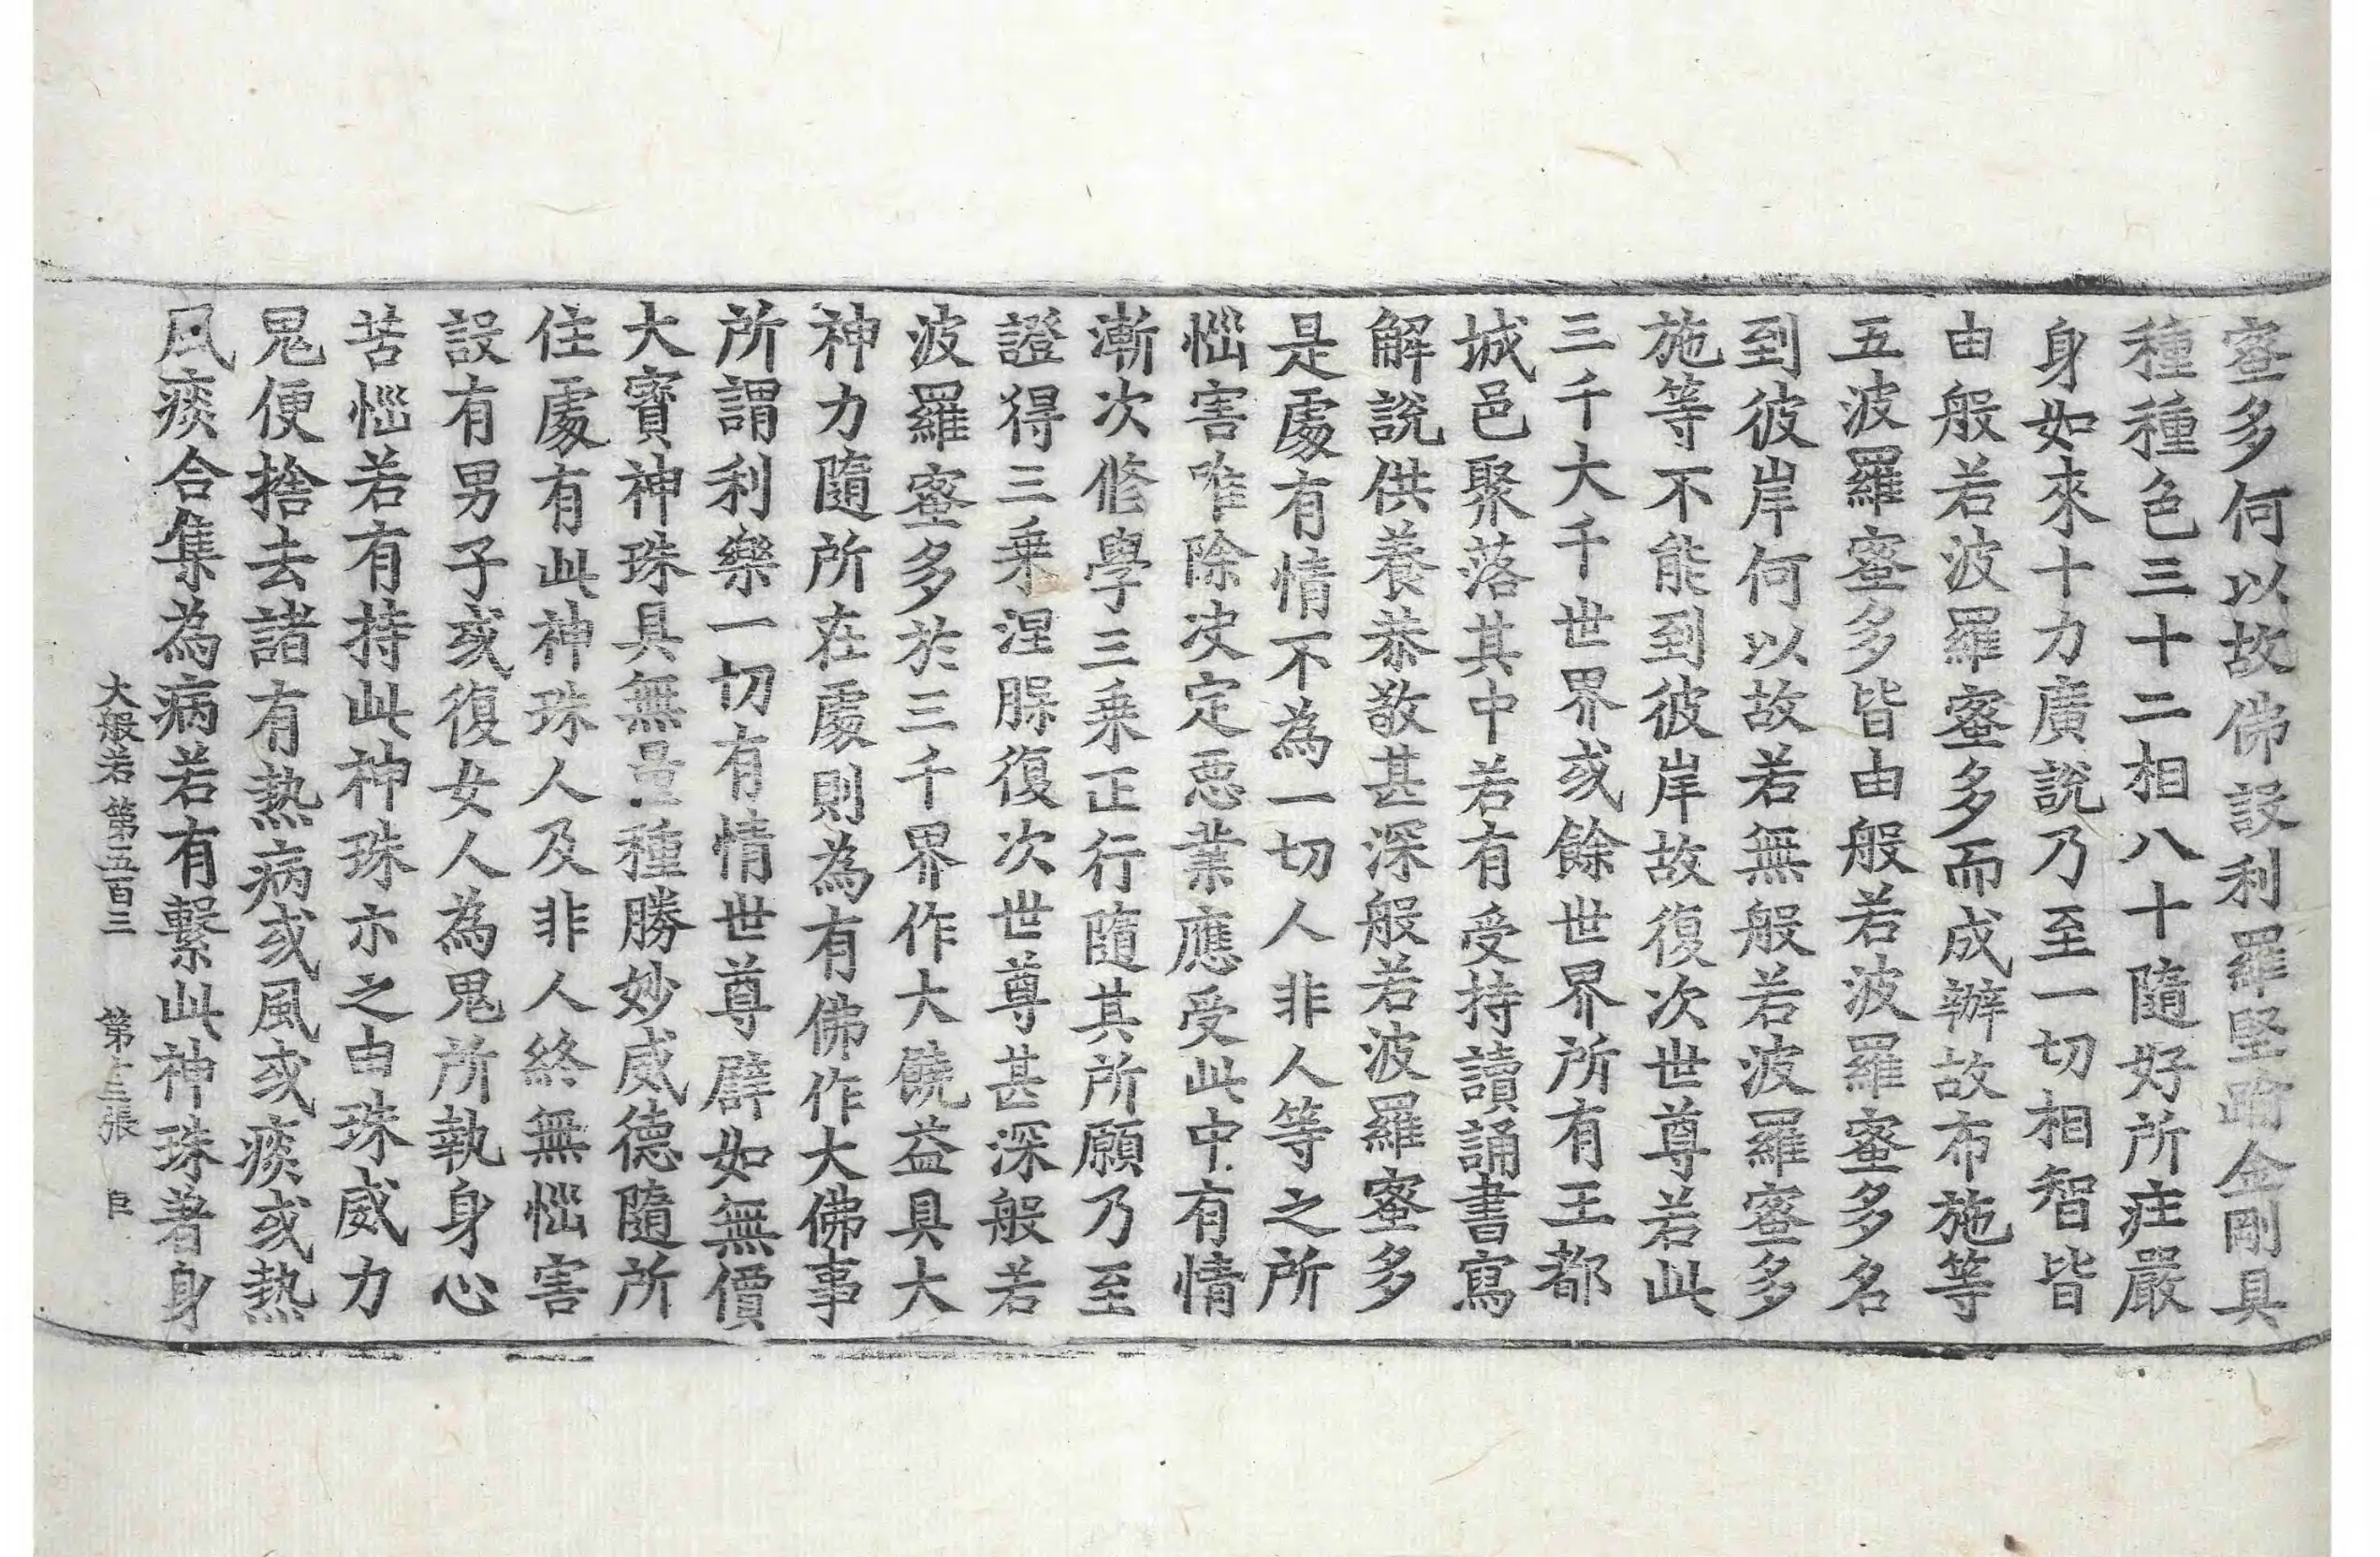 蜜多何以故佛設利羅堅踰金剛具
種種色三十二相八十隨好所莊嚴
身如來十力廣說乃至一切相智皆
由般若波羅蜜多而成辦故布施等
五波羅蜜多皆由般若波羅蜜多名
到彼岸何以故若無般若波羅蜜多
施等不能到彼岸故復次世尊若此
三千大千世界或餘世界所有王都
城邑聚落其中若有受持讀誦書寫
解說供養恭敬甚深般若波羅蜜多
是處有情不為一切人非人等之所
惱害唯除决定惡業應受此中有情
漸次修學三乗正行隨其所願乃至
證得三乗涅槃復次世尊甚深般若
波羅蜜多於三千界作大饒益具大
神力隨所在處則為有佛作大佛事
所謂利樂一切有情世尊譬如無價
大寶神珠具無量種勝妙威德隨所
住處有此神珠人及非人終無惱害
設有男子或復女人為鬼所執身心
苦惱若有持此神珠示之由珠威力
鬼便捨去諸有熱病或風或痰或熱
風痰合集為病若有繫此神珠著身
大般若第五百三 第十三張 臣